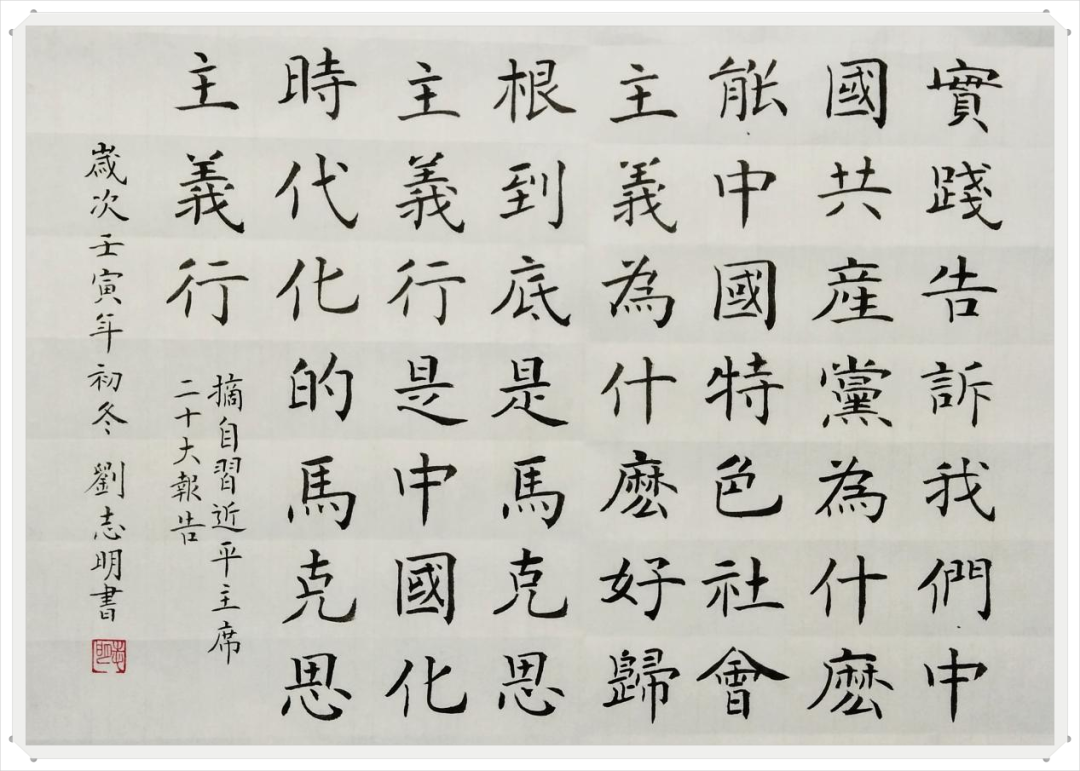 實踐告訴我們中
國共産黨為什麽
能中國特色社會
主義為什麽好歸
根到底是馬克思
主義行是中國化
時代化的馬克思
主義行
摘自習近平主席
二十大報告
歲次壬寅年初冬 劉志明書
志明